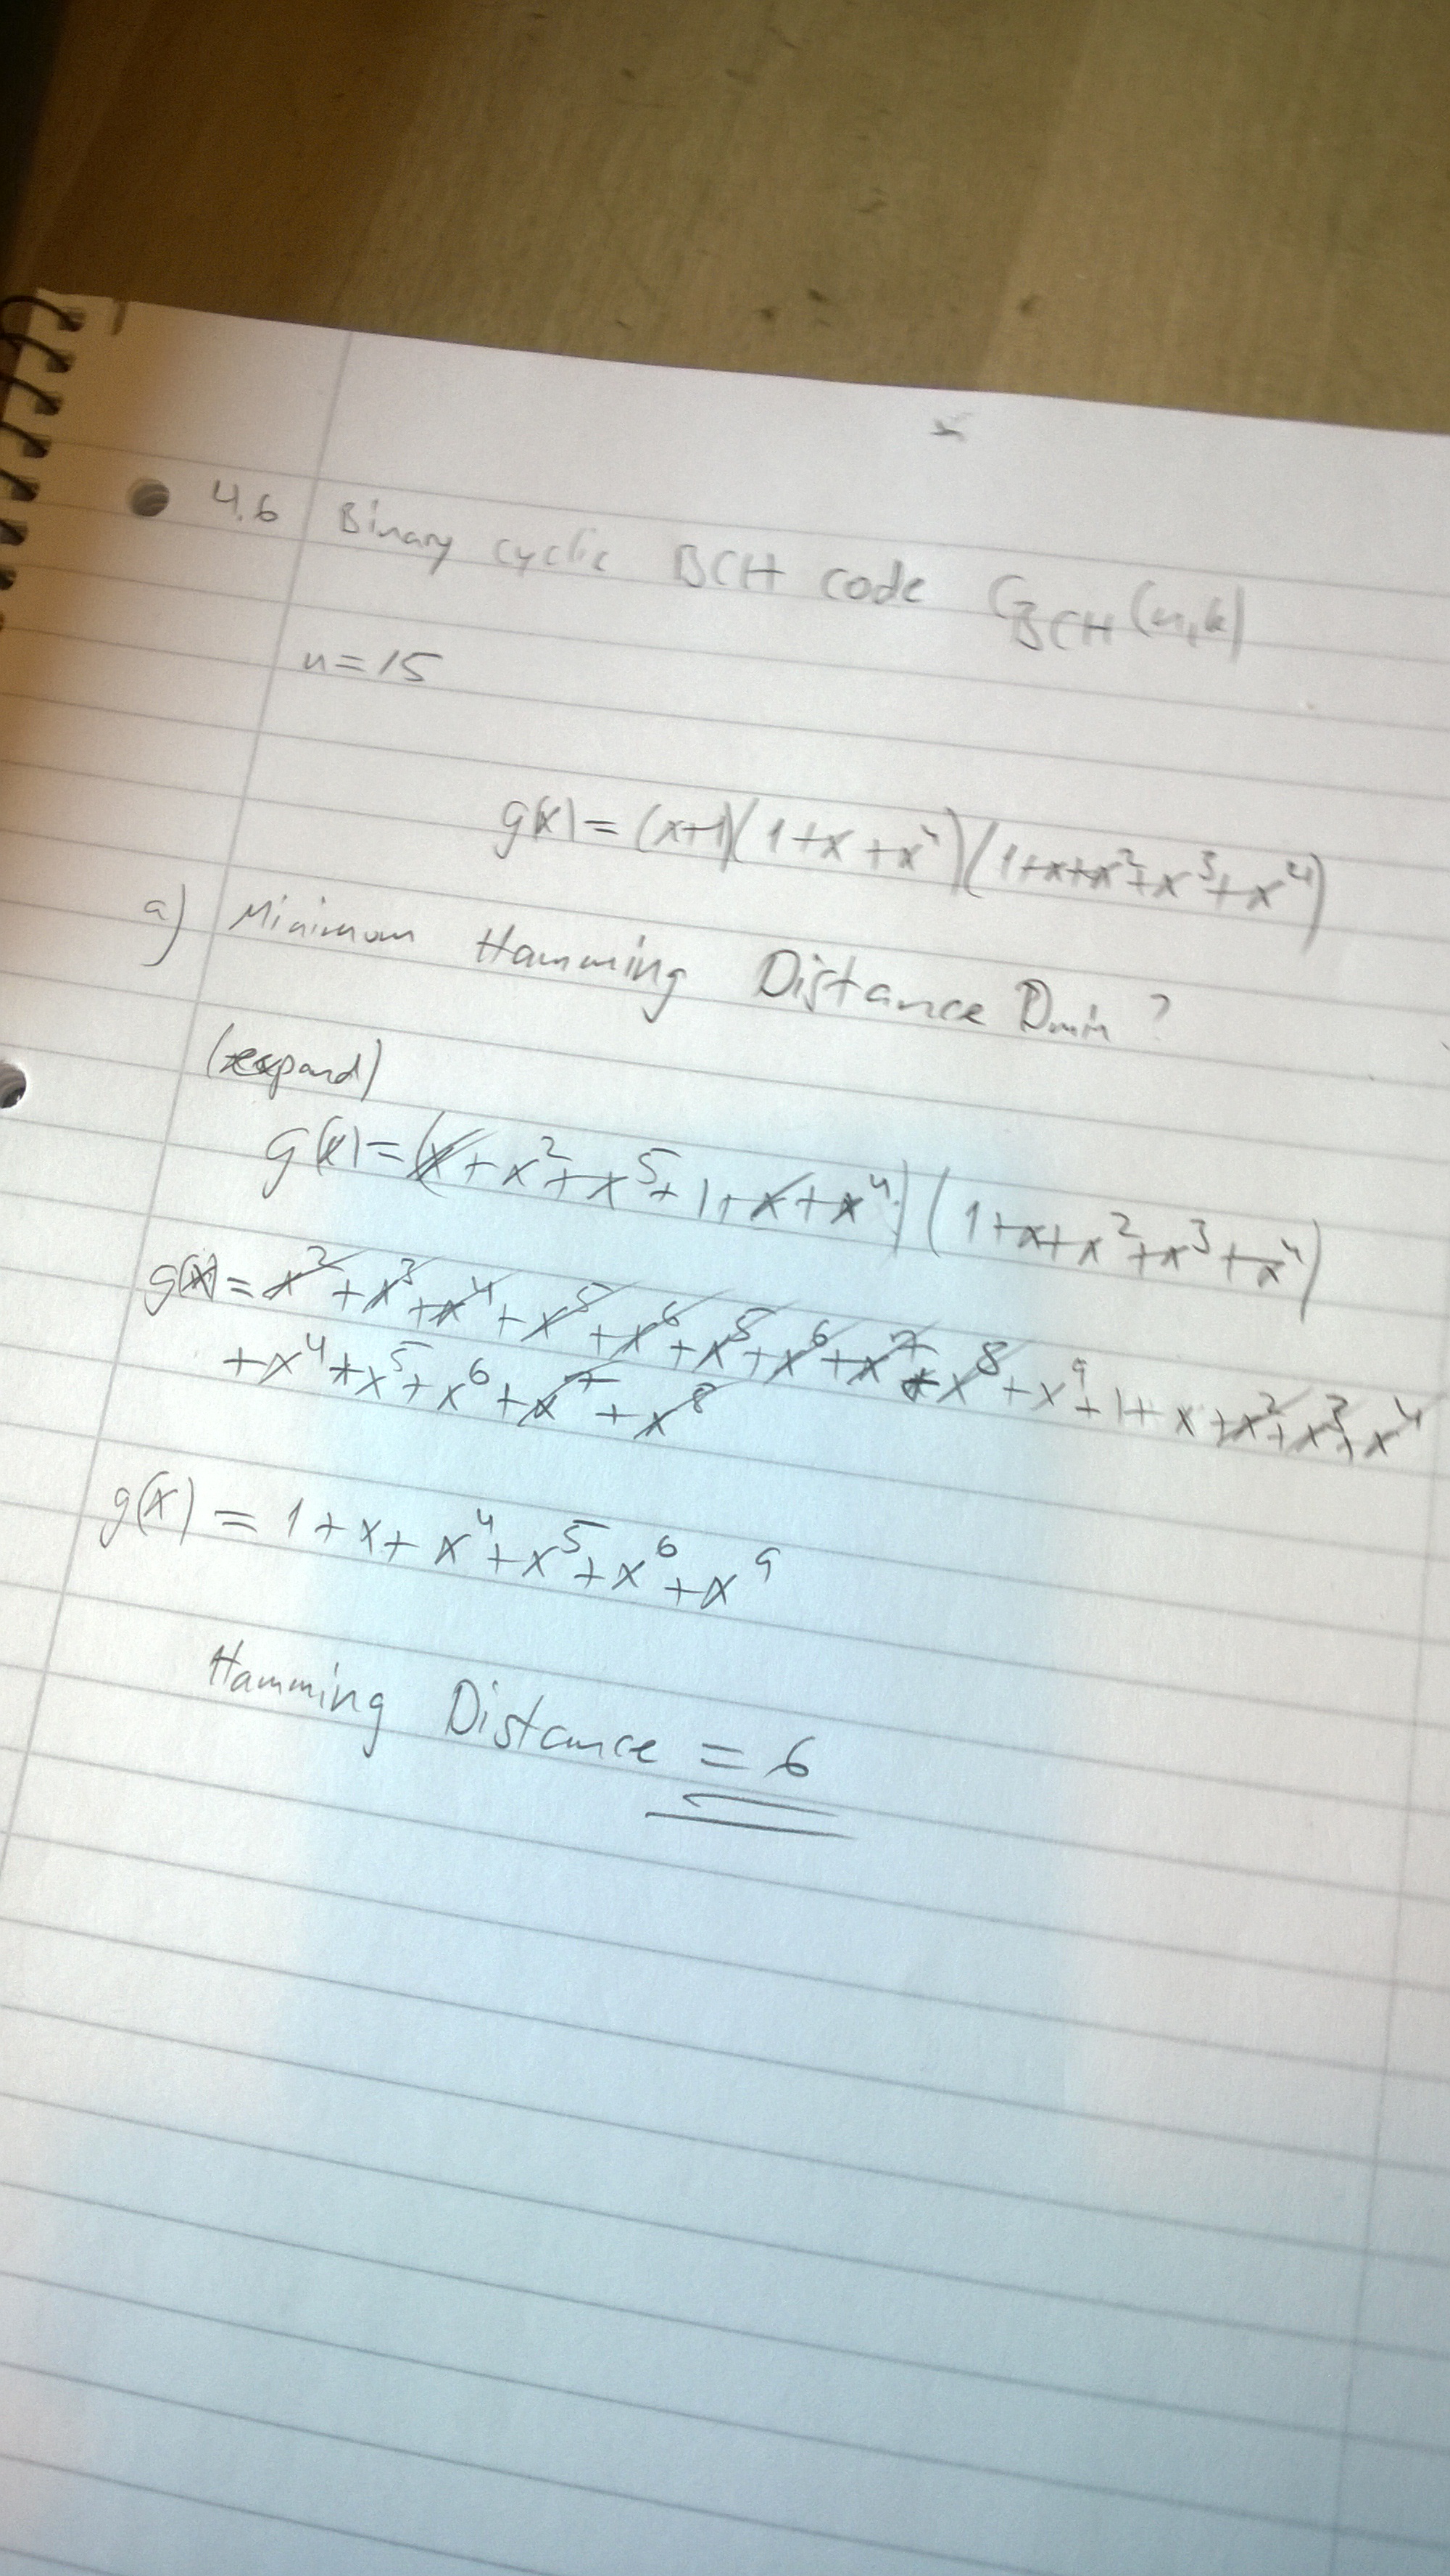 4.6 Binary cyclic BCH code C_BCH(n,k)
n=15
g(x)=(x+1)(1+x+x⁴)(1+x+x²+x³+x⁴)
a) Minimum Hamming Distance Dmin ?
(expand)
g(x)=(x+x²+x⁵+1+x+x⁴)(1+x+x²+x³+x⁴)
g(x)=x²+x³+x⁴+x⁵+x⁶+x⁵+x⁶+x⁷+x⁸+x⁹+1+x+x²+x³+x⁴
+x⁴+x⁵+x⁶+x⁷+x⁸
g(x)=1+x+x⁴+x⁵+x⁶+x⁹
Hamming Distance = 6